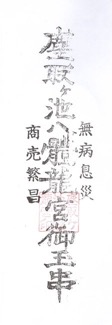 塵取ヶ池八體龍宮御玉串
無病息災
商売繁昌